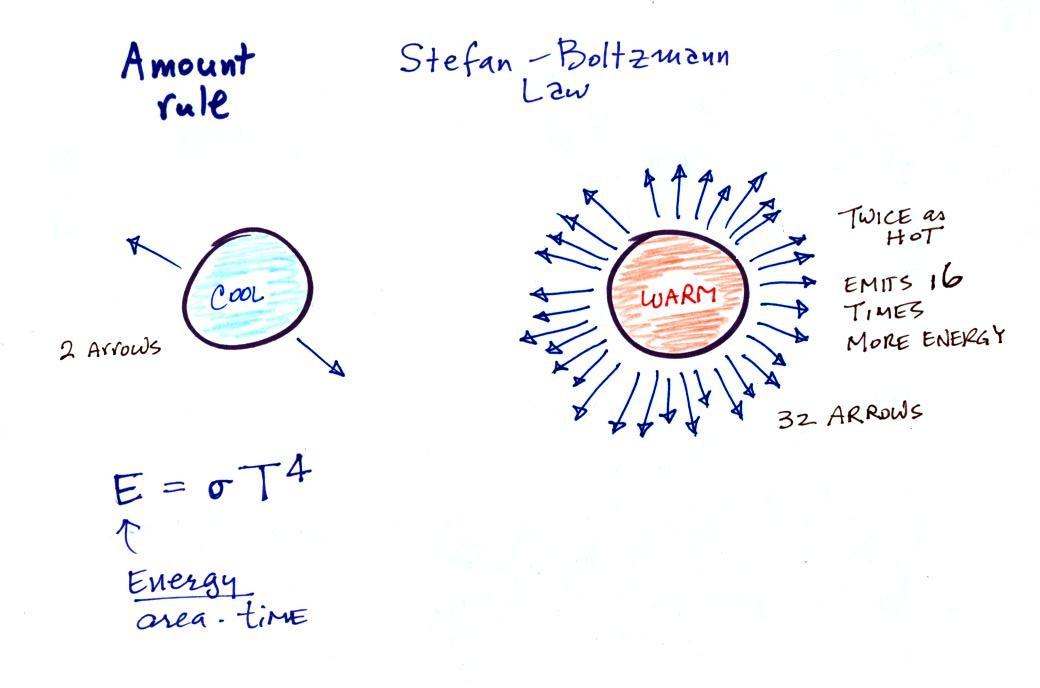 Amount
rule
Stefan - Boltzmann
Law
COOL
2 Arrows
WARM
TWICE as
HOT
EMITS 16
TIMES
MORE ENERGY
32 ARROWS
E = σ T⁴
Energy
area · time